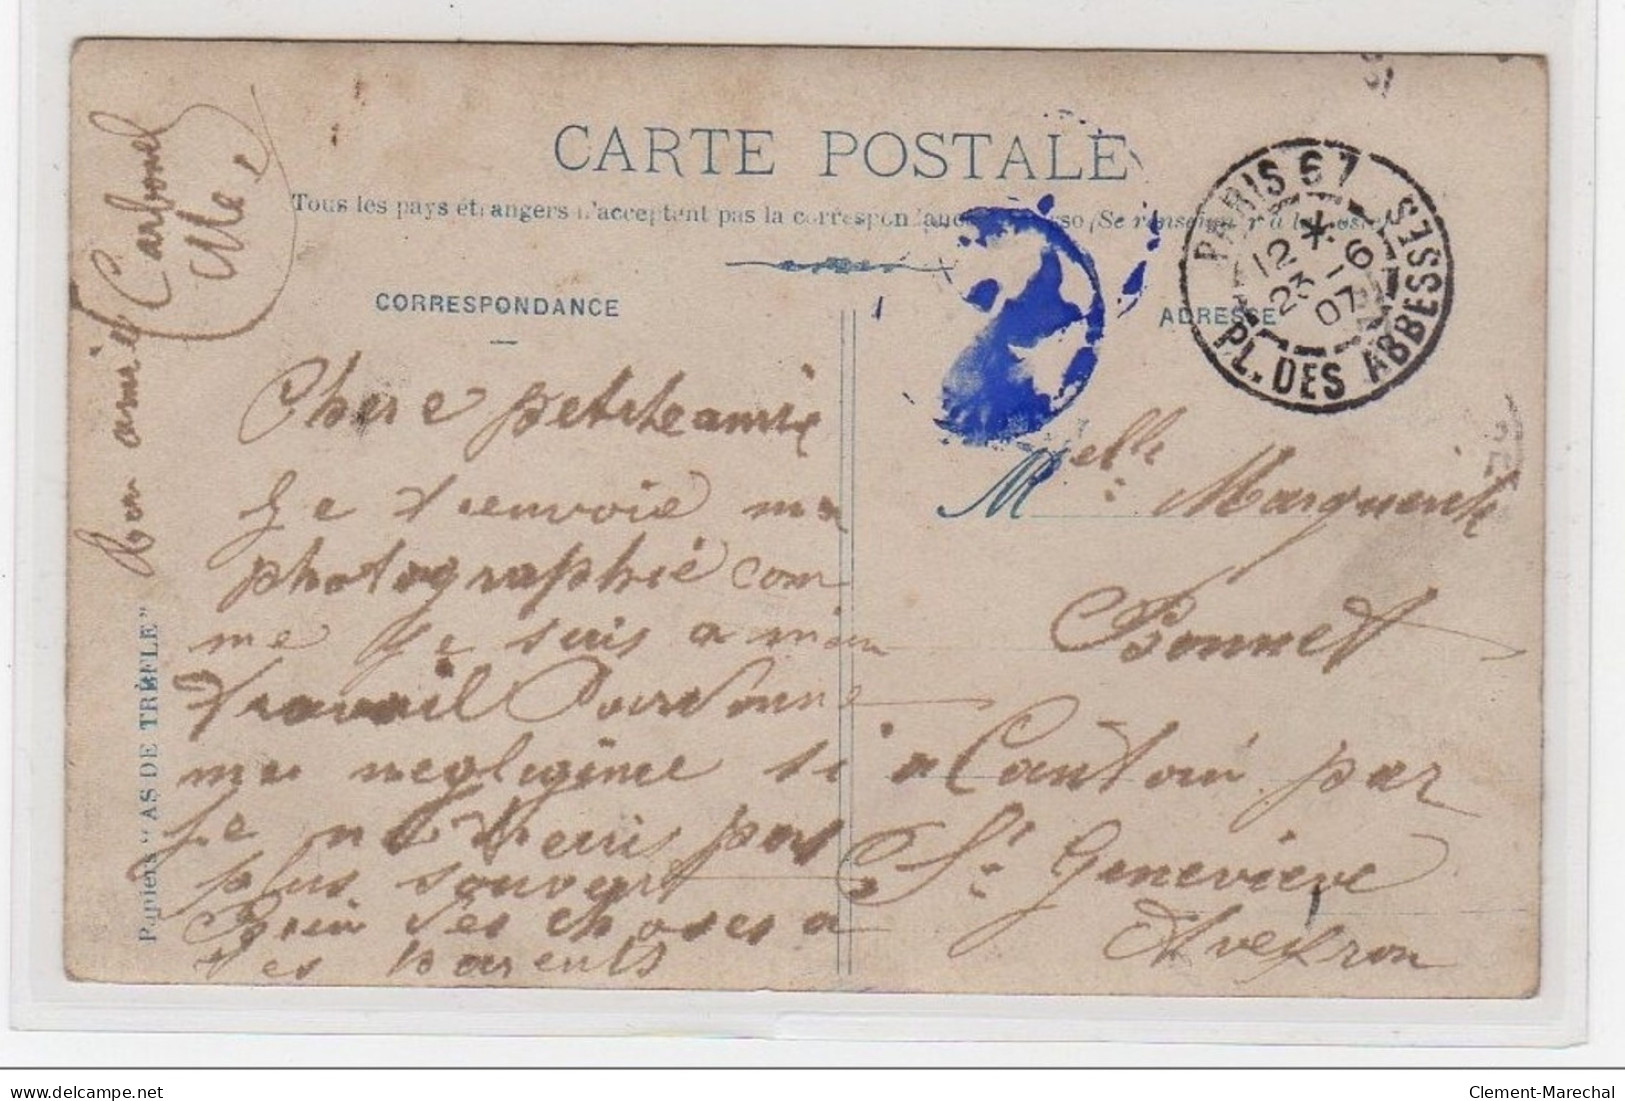 CARTE POSTALE
Tous les pays étrangers n'acceptent pas la correspondance au verso (Se renseigner à la poste)
CORRESPONDANCE
ADRESSE
PARIS 67
12 * 23 - 6 07
PL. DES ABBESSES
Chere petite amie
Je t'envoie ma
photographie com
me je suis a mon
travail Pardonne
ma negligence si
je ne t'ecris pas
plus souvent
Bien des choses a
tes parents
Ton amie Carbonel
Melle Marguerite
Bonnet
a Cantoin par
Ste Genevieve
Aveyron
Papiers "AS DE TRÈFLE"
delcampe.net
Clement-Marechal